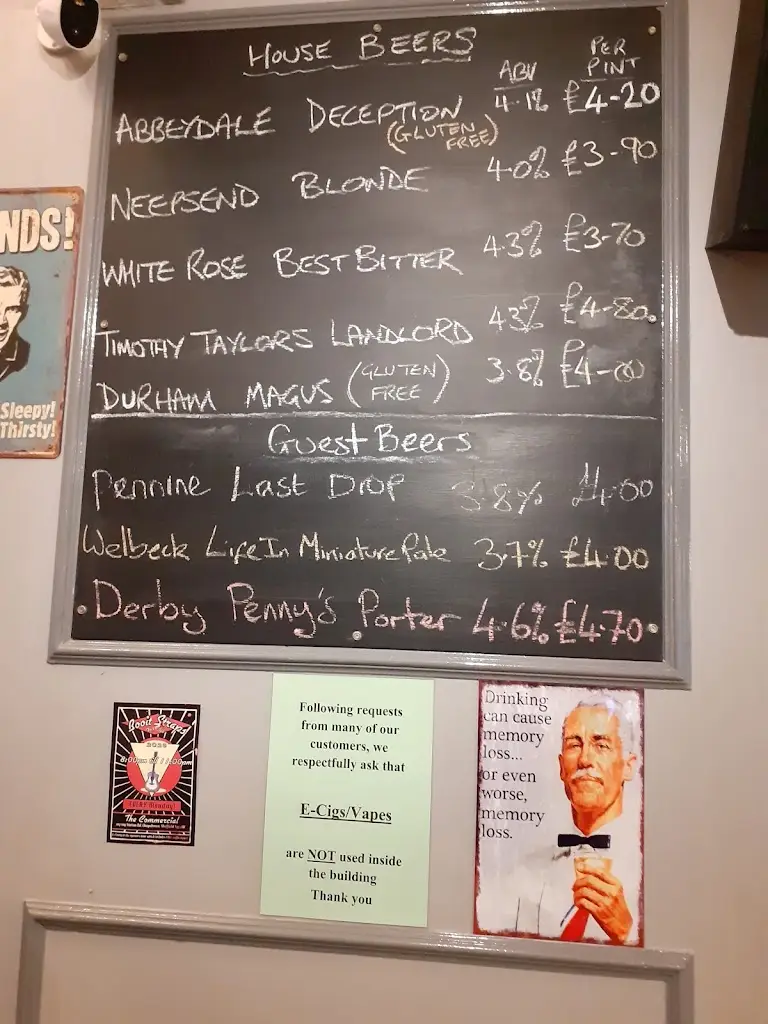 HOUSE BEERS
ABV PER PINT
ABBEYDALE DECEPTION (GLUTEN FREE) 4.1% £4-20
NEEPSEND BLONDE 4.0% £3-90
WHITE ROSE BEST BITTER 4.3% £3-70
TIMOTHY TAYLORS LANDLORD 4.3% £4-80
DURHAM MAGUS (GLUTEN FREE) 3.8% £4-00
Guest Beers
Pennine Last Drop 3.8% £4.00
Welbeck Life In Miniature Pale 3.7% £4.00
Derby Penny's Porter 4.6% £4.70
NDS!
Sleepy!
Thirsty!
Boot Straps
The Commercial
Following requests
from many of our
customers, we
respectfully ask that
E-Cigs/Vapes
are NOT used inside
the building
Thank you
Drinking
can cause
memory
loss...
or even
worse,
memory
loss.